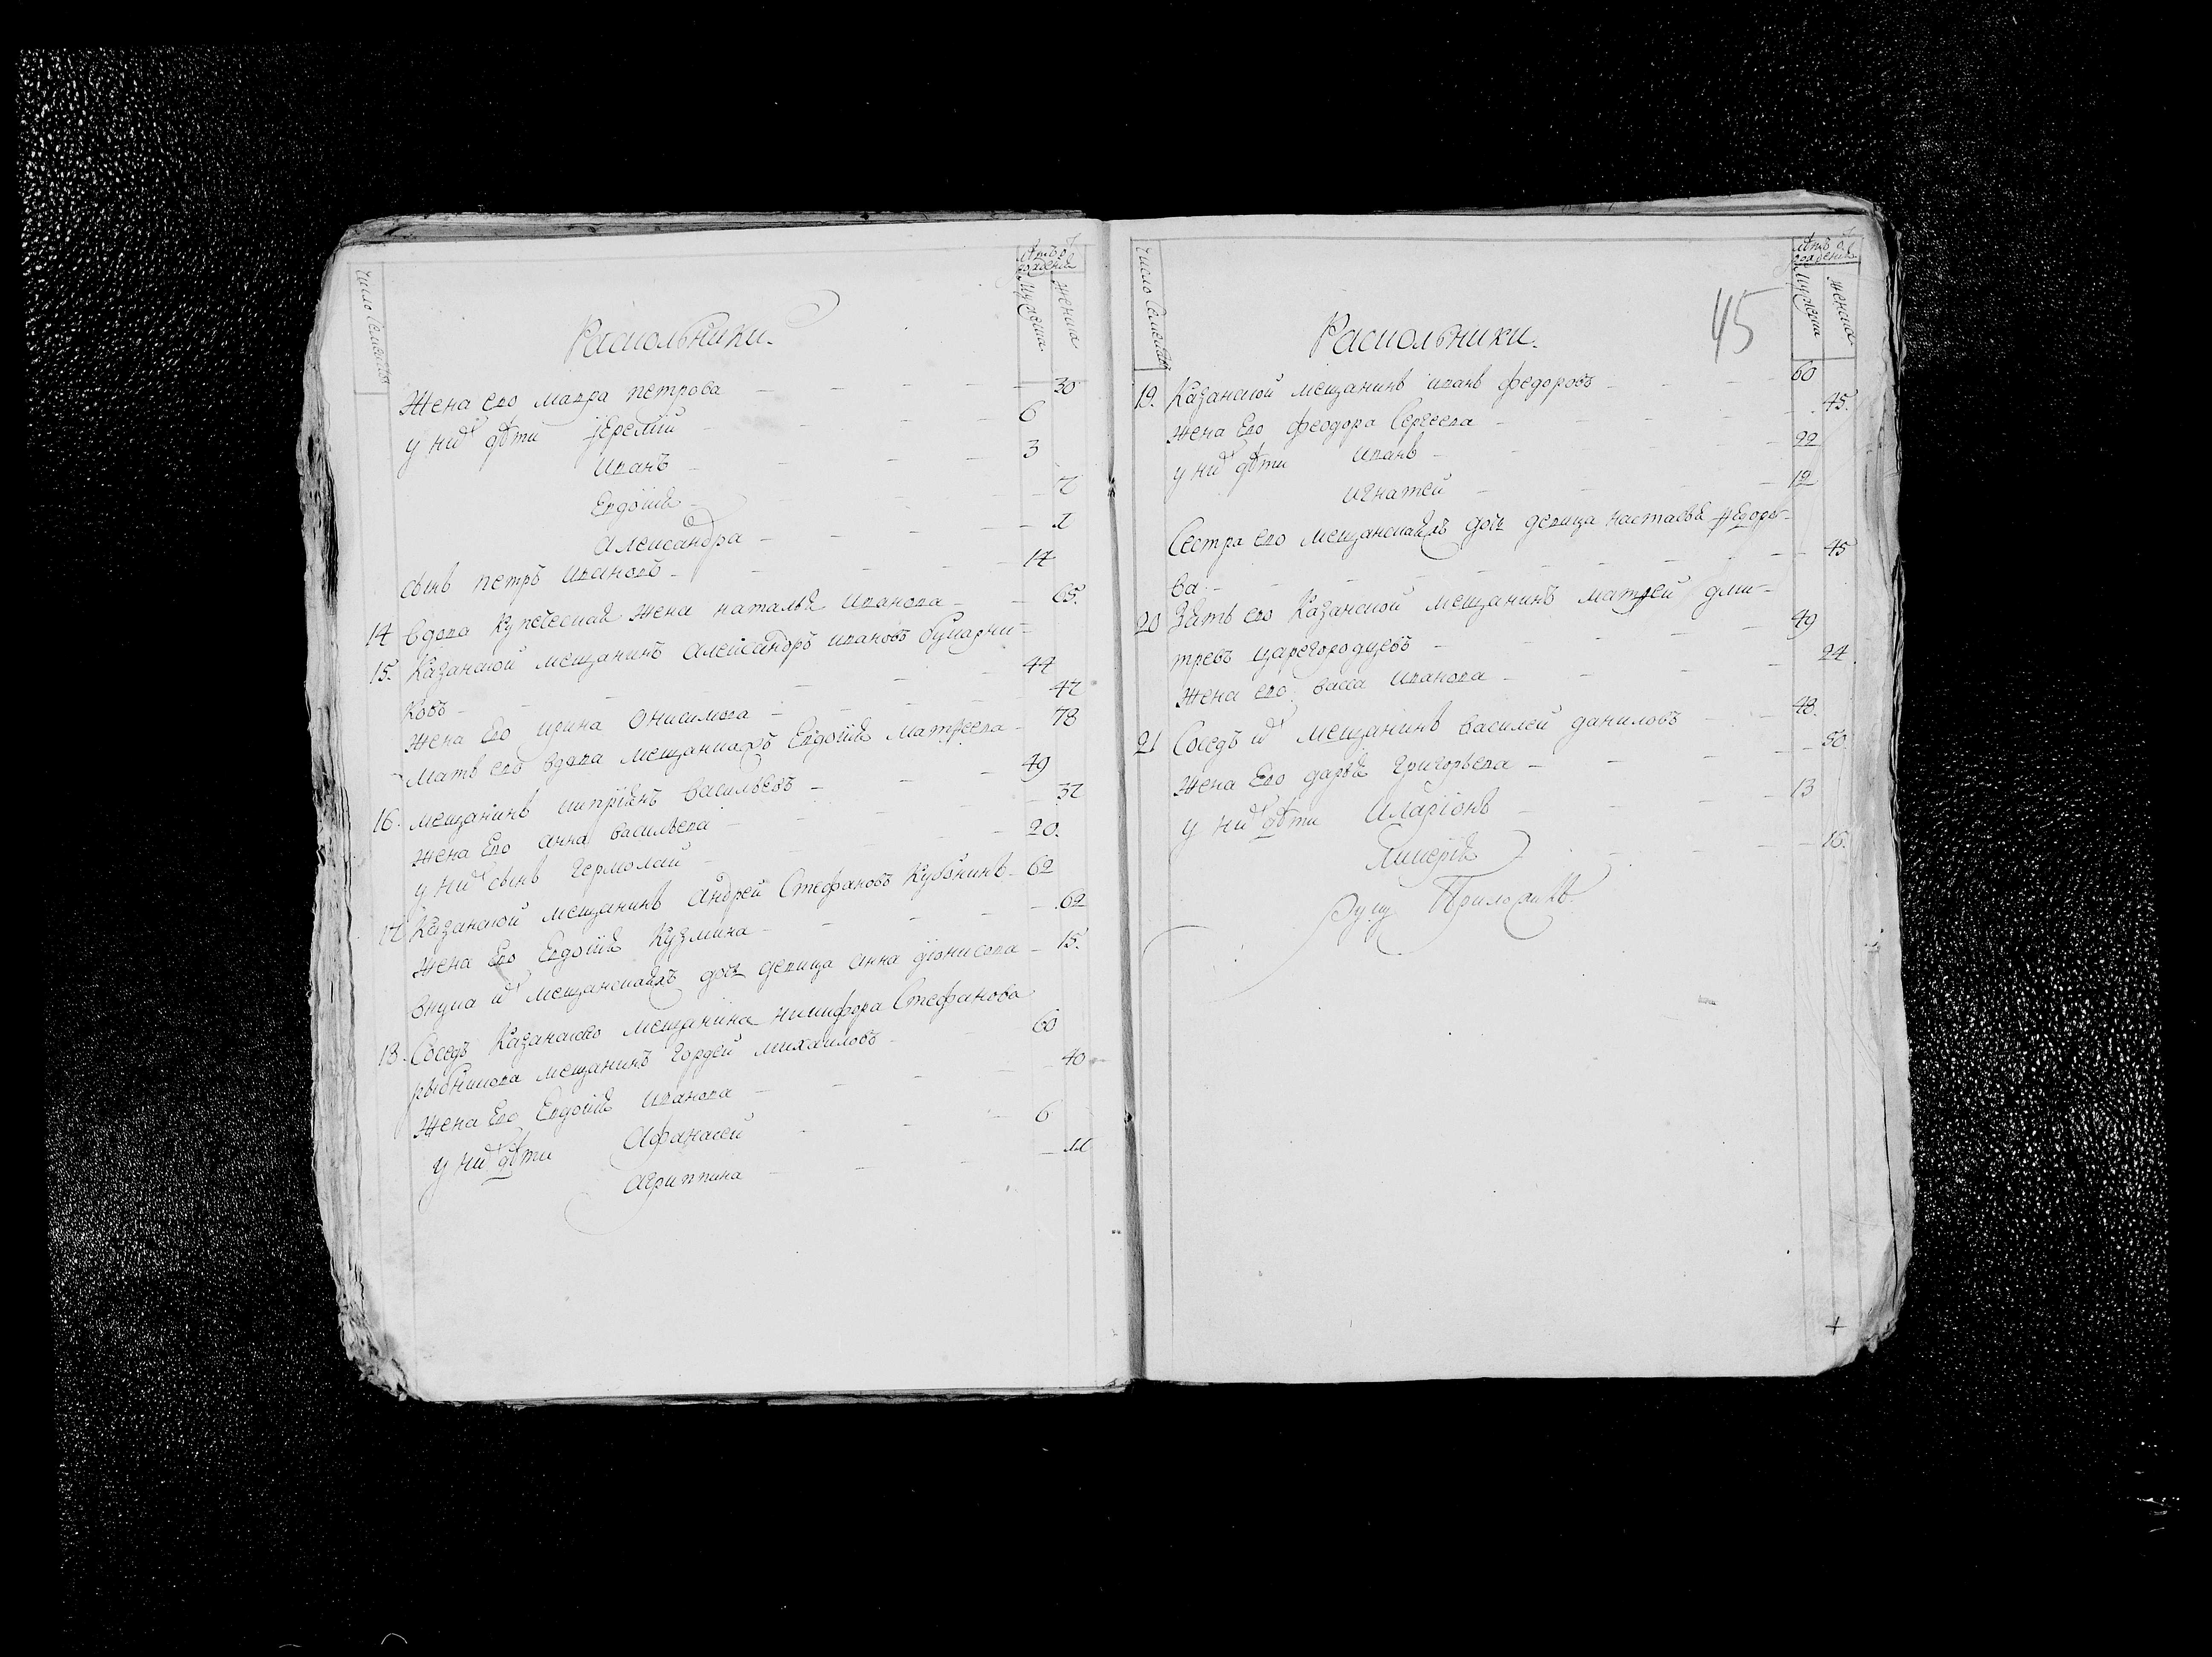 Число Семейства
Лѣтъ от рождения
Мужеска
Женска
Раскольники.
Жена ево мавра петрова — 30
у них дѣти Иеремий — 6
иванъ — 3
Евдокия — 7
Александра — 1
сынъ петръ ивановъ — 14
14 вдова купеческая жена наталья иванова — 65.
15. Казанской мещанинъ Александръ ивановъ бумажни-
ковъ — 44
Жена Ево ирина Онисимова — 47
Мать ево вдова мещанская Евдокия Матвеева — 78
16. мещанинъ киприянъ васильевъ — 49
Жена Ево анна васильева — 37
у них сынъ Гермолай — 20.
17 Казанской мещанинъ Андрей Стефановъ — 62
Жена Ево Евдокия Кузмина — 62
внука их мещанская дочь девица Анна дионисова — 15.
18. Соседъ Казанского мещанина никифора Стефанова
рыбникова мещанинъ гордей михаиловъ — 60
Жена Ево Евдокия иванова — 40
у них дѣти Афанасей — 6
агриппина — 11
Число Семейства
Лѣтъ от рождения
Мужеска
Женска
45
Раскольники.
19. Казанской мещанинъ иванъ федоровъ — 60
жена Ево феодора Сергеева — 45.
у них дѣти иванъ — 22
игнатей — 12
Сестра ево мещанская дочь девица настасья федоро-
ва — 45
20 Зять ево Казанской мещанинъ матвей дми-
тревъ царегородцевъ — 49
Жена ево васса иванова — 24
21 Соседъ их мещанинъ василей даниловъ — 48.
Жена Ево дарья григорьева — 50
у них дѣти иларионъ — 13
Гликерия — 16.